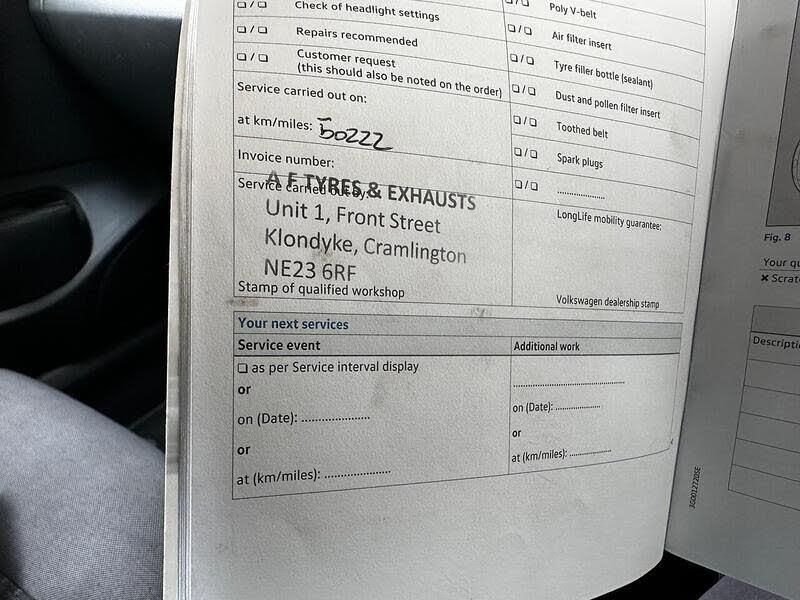 ❏ / ❏ Check of headlight settings
❏ / ❏ Repairs recommended
❏ / ❏ Customer request
(this should also be noted on the order)
Service carried out on:
at km/miles: 50222
Invoice number:
Service carried out by:
A F TYRES & EXHAUSTS
Unit 1, Front Street
Klondyke, Cramlington
NE23 6RF
Stamp of qualified workshop
❏ / ❏ Poly V-belt
❏ / ❏ Air filter insert
❏ / ❏ Tyre filler bottle (sealant)
❏ / ❏ Dust and pollen filter insert
❏ / ❏ Toothed belt
❏ / ❏ Spark plugs
❏ / ❏ ....................
LongLife mobility guarantee:
Volkswagen dealership stamp
Your next services
Service event
❏ as per Service interval display
or
on (Date): ....................
or
at (km/miles): ....................
Additional work
..................................
on (Date): ..............
or
at (km/miles): ..............
3G0012720SE
Fig. 8
Your
✖
Descripti